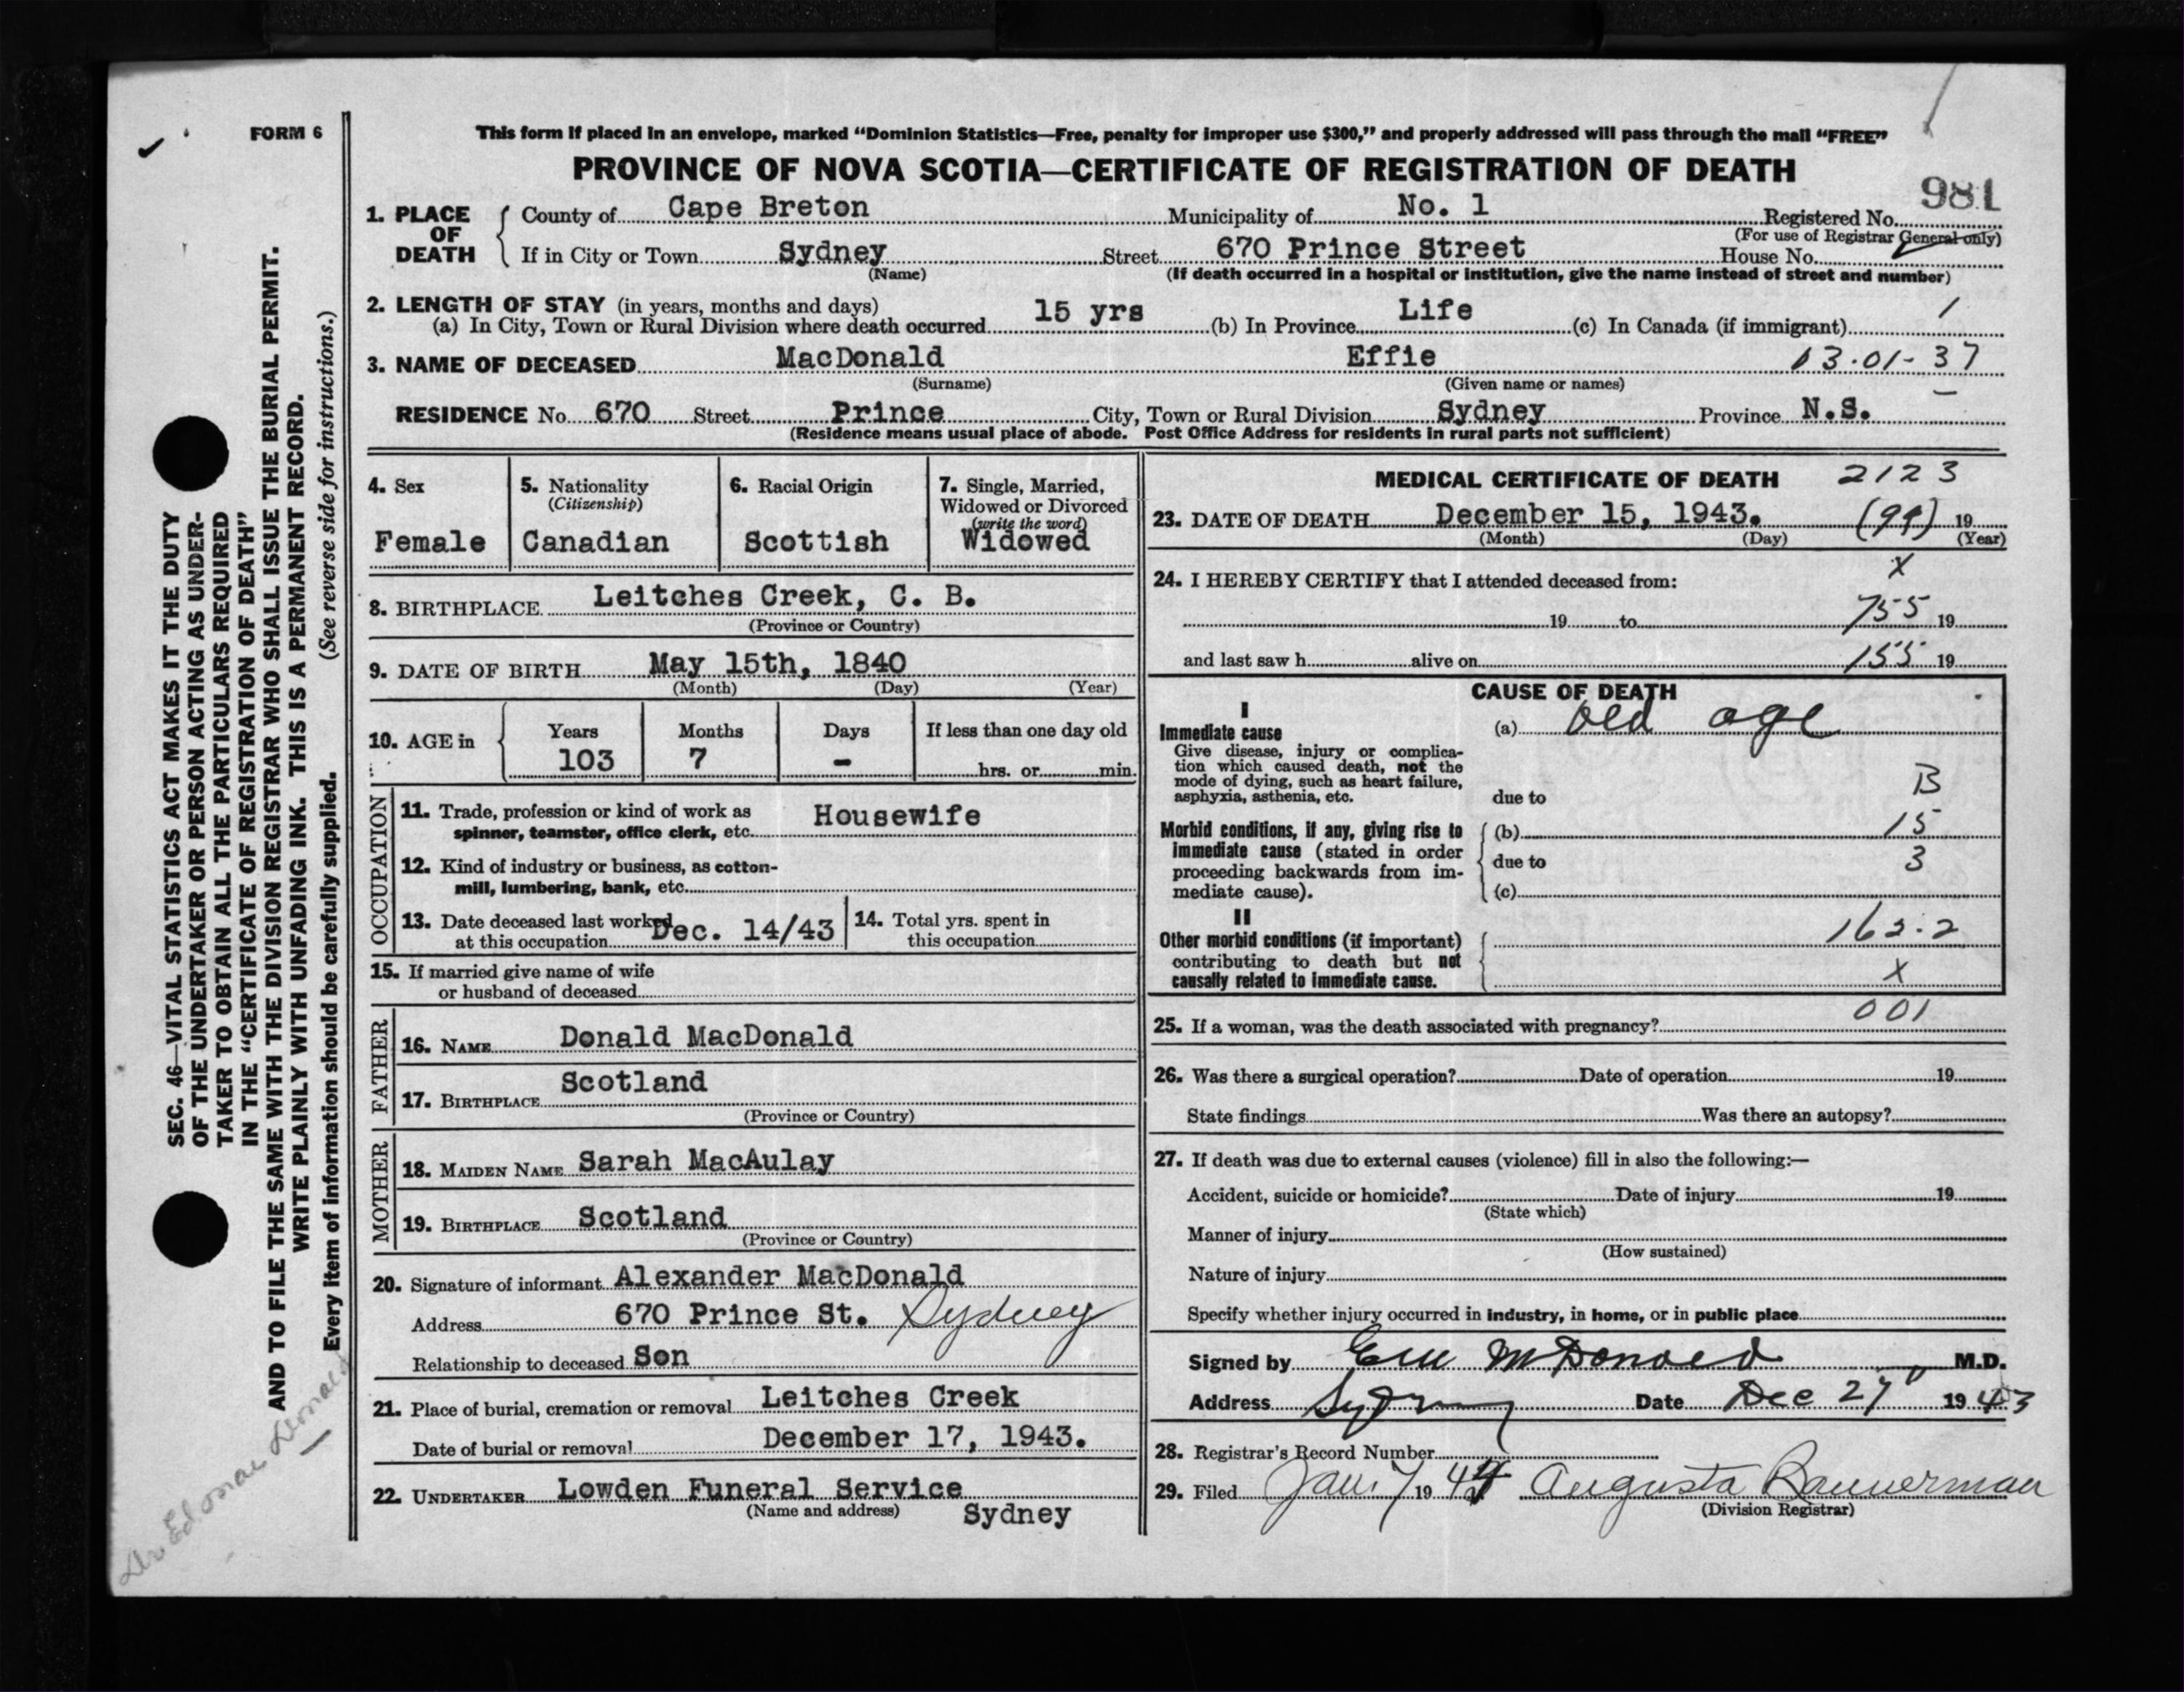 FORM 6
This form if placed in an envelope, marked “Dominion Statistics—Free, penalty for improper use $300,” and properly addressed will pass through the mail “FREE”
PROVINCE OF NOVA SCOTIA—CERTIFICATE OF REGISTRATION OF DEATH
981
1. PLACE OF DEATH
County of Cape Breton Municipality of No. 1 Registered No.
(For use of Registrar General only)
If in City or Town Sydney Street 670 Prince Street House No.
(Name) (If death occurred in a hospital or institution, give the name instead of street and number)
2. LENGTH OF STAY (in years, months and days)
(a) In City, Town or Rural Division where death occurred 15 yrs (b) In Province Life (c) In Canada (if immigrant) 1
3. NAME OF DECEASED MacDonald Effie 13-01-37
(Surname) (Given name or names)
RESIDENCE No. 670 Street Prince City, Town or Rural Division Sydney Province N.S.
(Residence means usual place of abode. Post Office Address for residents in rural parts not sufficient)
4. Sex
Female
5. Nationality
(Citizenship)
Canadian
6. Racial Origin
Scottish
7. Single, Married,
Widowed or Divorced
(write the word)
Widowed
8. BIRTHPLACE Leitches Creek, C. B.
(Province or Country)
9. DATE OF BIRTH May 15th, 1840
(Month) (Day) (Year)
10. AGE in
Years Months Days If less than one day old
103 7 - hrs. or min.
OCCUPATION
11. Trade, profession or kind of work as
spinner, teamster, office clerk, etc. Housewife
12. Kind of industry or business, as cotton-
mill, lumbering, bank, etc.
13. Date deceased last worked
at this occupation Dec. 14/43
14. Total yrs. spent in
this occupation
15. If married give name of wife
or husband of deceased
FATHER
16. NAME Donald MacDonald
17. BIRTHPLACE Scotland
(Province or Country)
MOTHER
18. MAIDEN NAME Sarah MacAulay
19. BIRTHPLACE Scotland
(Province or Country)
20. Signature of informant Alexander MacDonald
Address 670 Prince St. Sydney
Relationship to deceased Son
21. Place of burial, cremation or removal Leitches Creek
Date of burial or removal December 17, 1943.
22. UNDERTAKER Lowden Funeral Service
(Name and address) Sydney
MEDICAL CERTIFICATE OF DEATH 2123
23. DATE OF DEATH December 15, 1943. (99) 19
(Month) (Day) (Year)
24. I HEREBY CERTIFY that I attended deceased from: X
19 to 755 19
and last saw h alive on 155 19
CAUSE OF DEATH
I
Immediate cause (a) Old age
Give disease, injury or complica-
tion which caused death, not the
mode of dying, such as heart failure,
asphyxia, asthenia, etc.
due to B
Morbid conditions, if any, giving rise to
immediate cause (stated in order
proceeding backwards from im-
mediate cause).
(b) 15
due to 3
(c)
II
Other morbid conditions (if important)
contributing to death but not
causally related to immediate cause.
162.2
X
25. If a woman, was the death associated with pregnancy? 001
26. Was there a surgical operation? Date of operation 19
State findings Was there an autopsy?
27. If death was due to external causes (violence) fill in also the following:—
Accident, suicide or homicide? Date of injury 19
(State which)
Manner of injury
(How sustained)
Nature of injury
Specify whether injury occurred in industry, in home, or in public place
Signed by McDonald M.D.
Address Sydney Date Dec 27 1943
28. Registrar's Record Number
29. Filed Jan. 7 1944 Augusta Bannerman
(Division Registrar)
SEC. 46—VITAL STATISTICS ACT MAKES IT THE DUTY
OF THE UNDERTAKER OR PERSON ACTING AS UNDER-
TAKER TO OBTAIN ALL THE PARTICULARS REQUIRED
IN THE “CERTIFICATE OF REGISTRATION OF DEATH”
AND TO FILE THE SAME WITH THE DIVISION REGISTRAR WHO SHALL ISSUE THE BURIAL PERMIT.
WRITE PLAINLY WITH UNFADING INK. THIS IS A PERMANENT RECORD.
Every item of information should be carefully supplied. (See reverse side for instructions.)
Dr. Ed